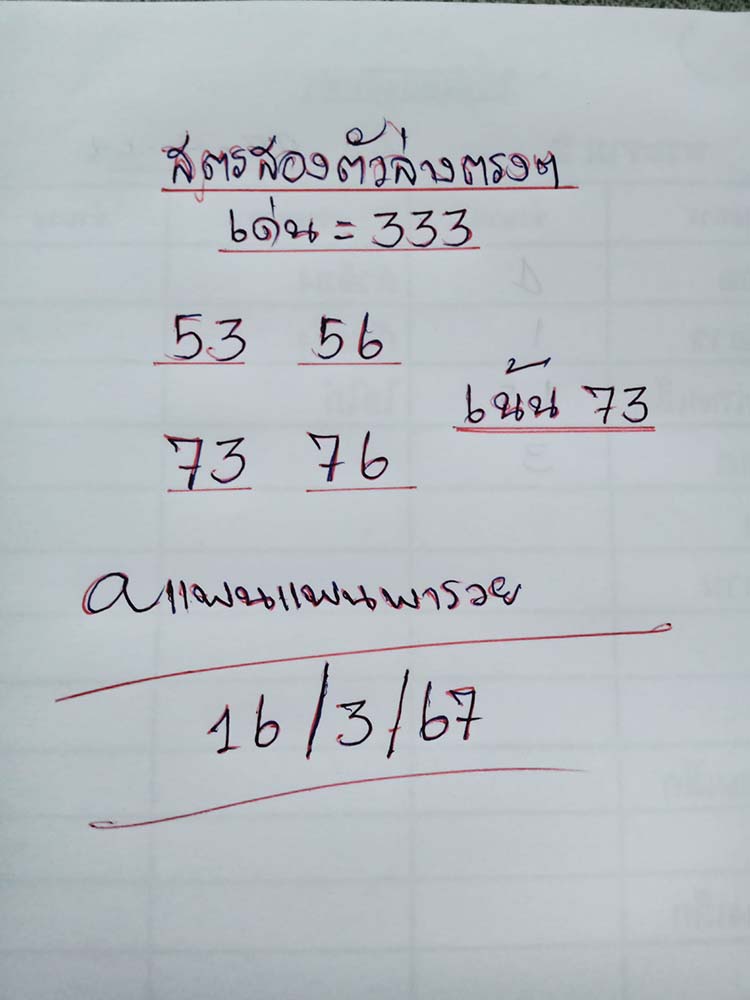 สูตรสองตัวล่างตรงๆ
เด่น = 333
53 56
เน้น 73
73 76
aแฟนแฟนพารวย
16/3/67